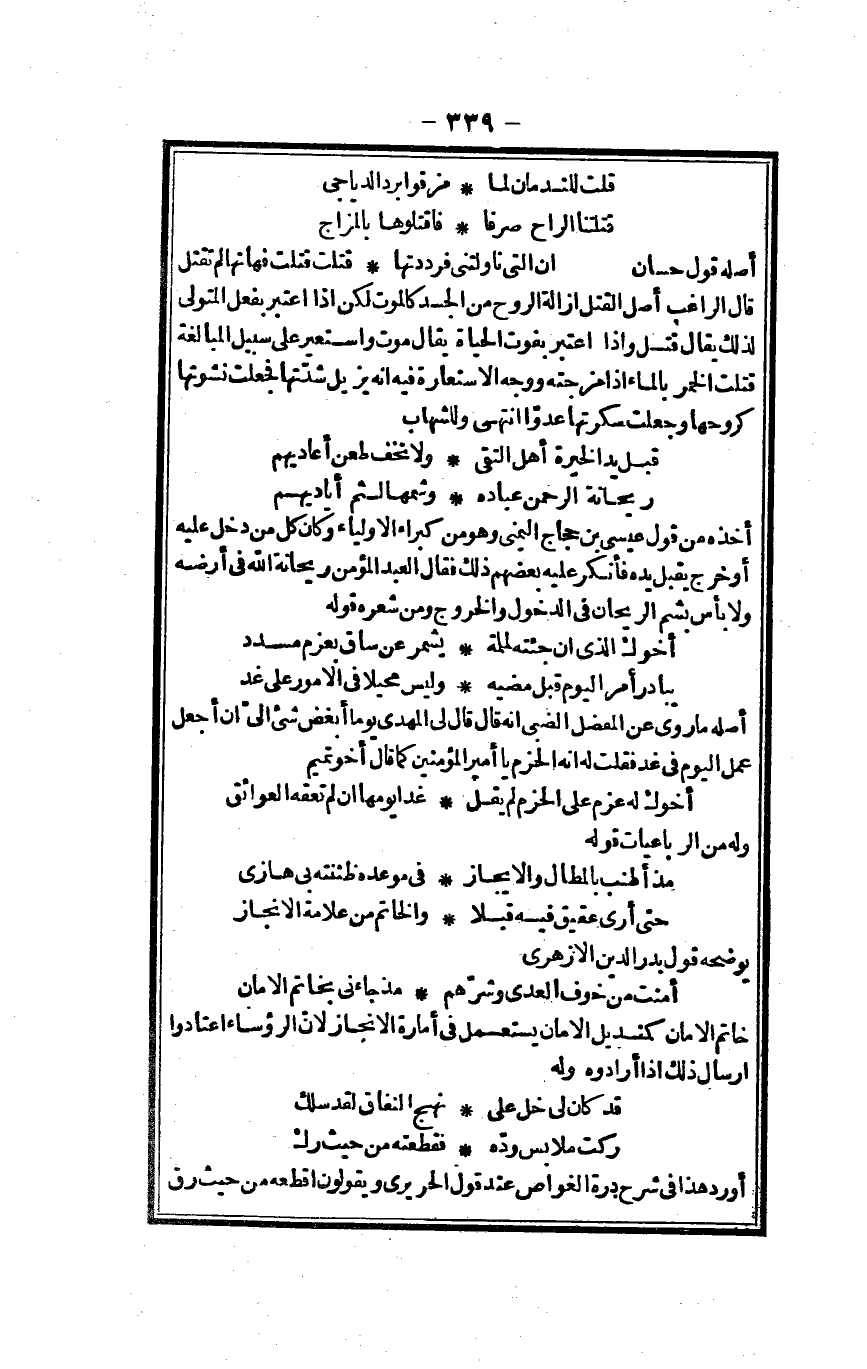 - ٣٣٩ -
قلت للندمان لما * مزقوا برد الدياجى
قتلتنا الراح صرفا * فاقتلوها بالمزاج
أصله قول حسان ان التى ناولتنى فرددتها * قتلت قتلت فهاتها لم تقتل
قال الراغب أصل القتل ازالة الروح من الجسد كالموت لكن اذا اعتبر بفعل المتولى
لذلك يقال قتل واذا اعتبر بفوت الحياة يقال موت واستعير على سبيل المبالغة
قتلت الخمر بالماء اذا مزجته ووجه الاستعارة فيه انه يزيل شدّتها فجعلت نشوتها
كروحها وجعلت سكرتها عدوّا انتهى وللشهاب
قبل يد الخيرة أهل التقى * ولا تخف طعن أعاديهم
ريحانة الرحمن عباده * وشمها لثم أياديهم
أخذه من قول عيسى بن حجاج اليمنى وهو من كبراء الاولياء وكان كل من دخل عليه
أوخرج يقبل يده فأنكر عليه بعضهم ذلك فقال العبد المؤمن ريحانة الله فى أرضه
ولا بأس بشم الريحان فى الدخول والخروج ومن شعره قوله
أخوك الذى ان جئته لملمة * يشمر عن ساق بعزم مسدد
يبادر أمر اليوم قبل مضيه * وليس محيلا فى الامور على غد
أصله ماروى عن المفضل الضبى انه قال قال لى المهدى يوما أبغض شئ الىّ ان أجعل
عمل اليوم فى غد فقلت له انه الحزم يا أمير المؤمنين كما قال أخو تميم
أخوك له عزم على الحزم لم يقل * غدا يومها ان لم تعقه العوائق
وله من الرباعيات قوله
مذ أطنب بالمطال والايجاز * فى موعده ظننته بى هازى
حتى أرى عقيق فيه قبلا * والخاتم من علامة الانجاز
يوضحه قول بدر الدين الازهرى
أمنت من خوف العدى وشرّهم * مذجاءنى بخاتم الامان
خاتم الامان كمنديل الامان يستعمل فى أمارة الانجاز لان الرؤساء اعتادوا
ارسال ذلك اذا أرادوه وله
قد كان لى خل على * نهج النفاق لقد سلك
ركت ملابس ودّه * فقطعته من حيث رك
أورد هذا فى شرح درة الغواص عند قول الحريرى ويقولون اقطعه من حيث رق